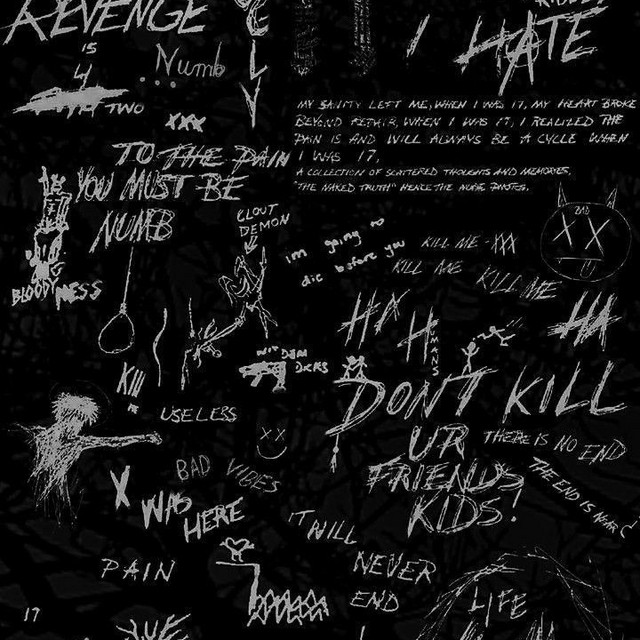 REVENGE
IS
4
TWO
... Numb
XXX
TO THE PAIN
YOU MUST BE
NUMB
BLOODY MESS
I HATE
MY SANITY LEFT ME, WHEN I WAS 17, MY HEART BROKE
BEYOND REPAIR, WHEN I WAS 17, I REALIZED THE
PAIN IS AND WILL ALWAYS BE A CYCLE WHEN
I WAS 17,
A COLLECTION OF SCATTERED THOUGHTS AND MEMORIES,
"THE NAKED TRUTH" HENCE THE NUDE PHOTOS.
CLOUT
DEMON
im going to
die before you
KILL ME - XXX
KILL ME KILL ME
BAD
X X
HA
HA
HA
HUMANS
KILL
USELESS
DON'T KILL
UR
FRIENDS
KIDS!
THERE IS NO END
THE END IS NEAR
BAD VIBES
X WAS
HERE
IT WILL
NEVER
END
PAIN
LIFE
17